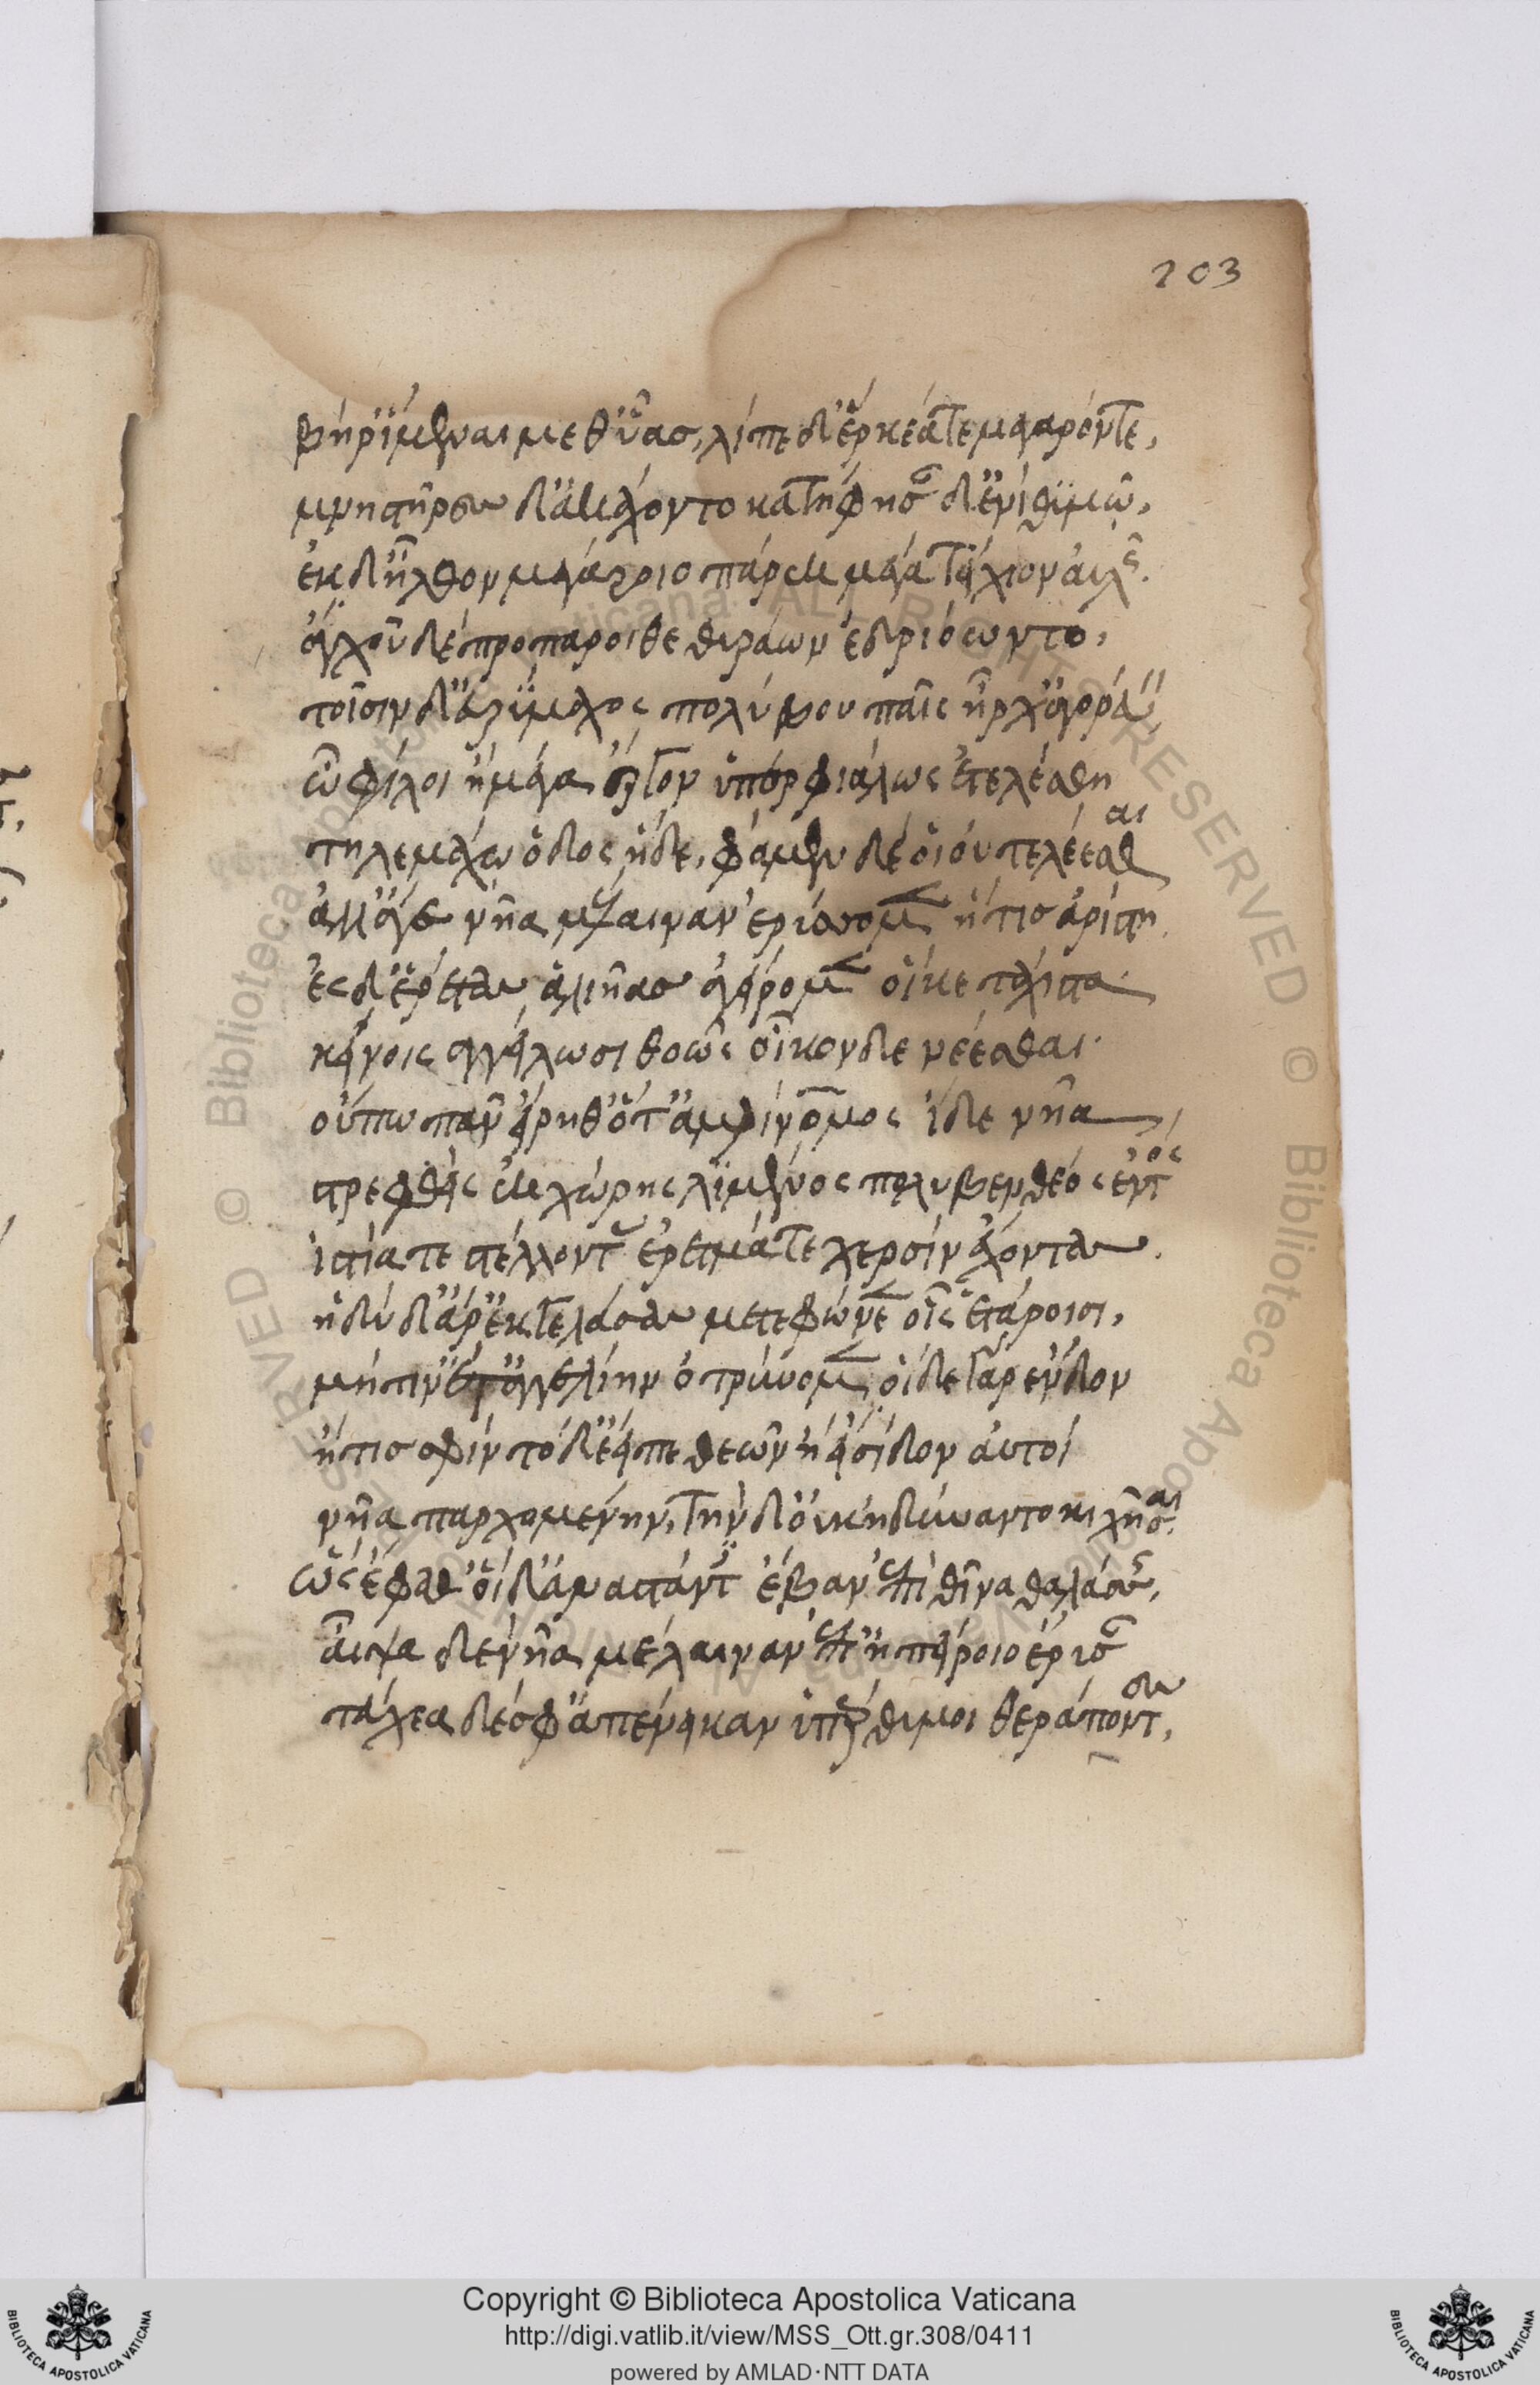 203
βῆ ῥ' ἴμεναι μεθ' ὕασ, λίπε δ' ἕρκεά τε μέγαρόν τε,
μνηστῆρες δ' ἀκάχοντο κατήφησαν δ' ἐνὶ θυμῶ,
ἐκ δ' ἦλθον μεγάροιο πάρεκ μέγα τείχιον αὐλῆς.
ἀγχοῦ δὲ προπάροιθε θυράων ἑδριόωντο,
τοῖσιν δ' εὐρύμαχος πολύβου παῖς ἦρχ' ἀγορεύειν
ὦ φίλοι ἦ μέγα ἔργον ὑπερφιάλως ἐτελέσθη
τηλεμάχω ὁδὸς ἥδε, φάμεν δέ οἱ οὐ τελέεσθαι
ἀλλ' ἄγε νῆα μέλαιναν ἐρύσσομεν ἥτισ ἀρίστη.
ἐς δ' ἐρέτας ἁλιῆας ἀγείρομεν οἵ κε τάχιστα
κείνοις ἀγγείλωσι θοῶς οἶκονδε νέεσθαι.
οὔπω πᾶν εἴρηθ' ὅτ' ἀμφίνομος ἴδε νῆα
στρεφθεὶς ἐκ χώρης λιμένος πολυβενθέος ἐντός
ἱστία τε στέλλοντας ἐρετμά τε χερσὶν ἔχοντας.
ἡδὺ δ' ἄρ' ἐκγελάσας μετεφώνεε οἷς ἑτάροισι,
μήτιν' ἔτ' ἀγγελίην ὀτρύνομεν, οἵδε γὰρ ἔνδον
ἤ τισ σφιν τόδ' ἔειπε θεῶν ἢ εἴσιδον αὐτοί
νῆα παρχομένην, τὴν δ' οὐκ ἠδύναντο κιχῆναι.
ὣς ἔφαθ' οἱ δ' ἀναστάντες ἔβαν ἐπὶ θῖνα θαλάσσης,
αἶψα δὲ νῆα μέλαιναν ἐπ' ἠπείροιο ἔρυσαν
τεύχεα δέ σφ' ἀπένεικαν ὑπέρθυμοι θεράποντες,
Copyright © Biblioteca Apostolica Vaticana
http://digi.vatlib.it/view/MSS_Ott.gr.308/0411
powered by AMLAD·NTT DATA